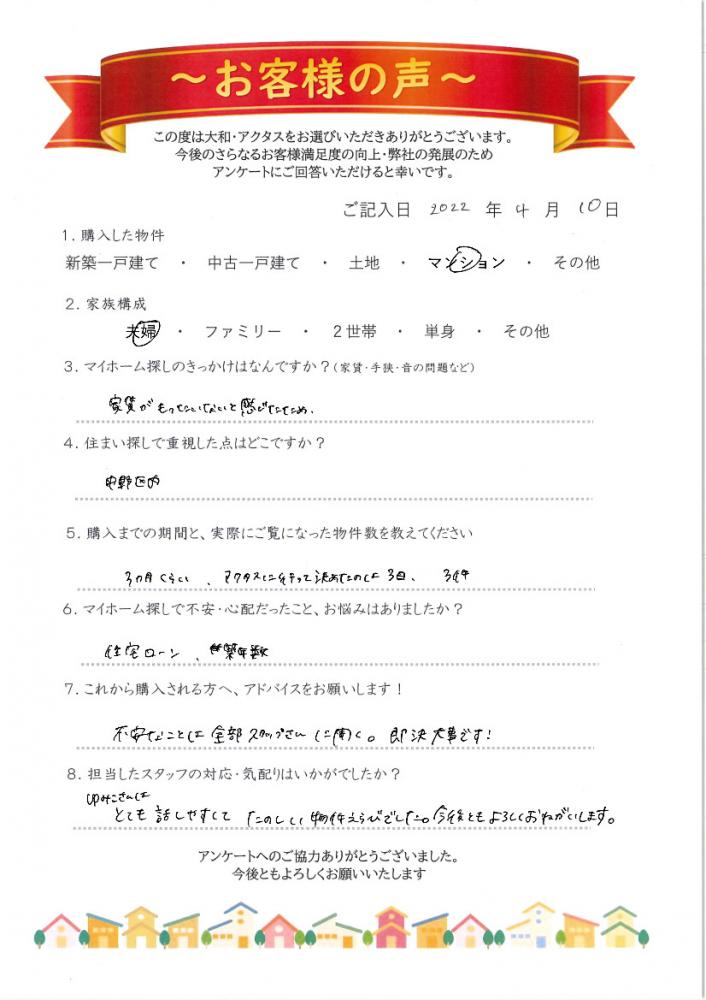 ～お客様の声～
この度は大和・アクタスをお選びいただきありがとうございます。
今後のさらなるお客様満足度の向上・弊社の発展のため
アンケートにご回答いただけると幸いです。
ご記入日 2022 年 4 月 10日
1．購入した物件
新築一戸建て ・ 中古一戸建て ・ 土地 ・ マンション ・ その他
2．家族構成
夫婦 ・ ファミリー ・ 2世帯 ・ 単身 ・ その他
3．マイホーム探しのきっかけはなんですか？（家賃・手狭・音の問題など）
家賃がもったいないと感じたため。
4．住まい探しで重視した点はどこですか？
中野区内
5．購入までの期間と、実際にご覧になった物件数を教えてください
3カ月くらい、アクタスに行って決めたのは3日、3件
6．マイホーム探しで不安・心配だったこと、お悩みはありましたか？
住宅ローン、築年数
7．これから購入される方へ、アドバイスをお願いします！
不安なことは全部スタッフさんに聞く。即決大事です！
8．担当したスタッフの対応・気配りはいかがでしたか？
ゆみこさんは
とても話しやすくてたのしい物件えらびでした。今後ともよろしくおねがいします。
アンケートへのご協力ありがとうございました。
今後ともよろしくお願いいたします